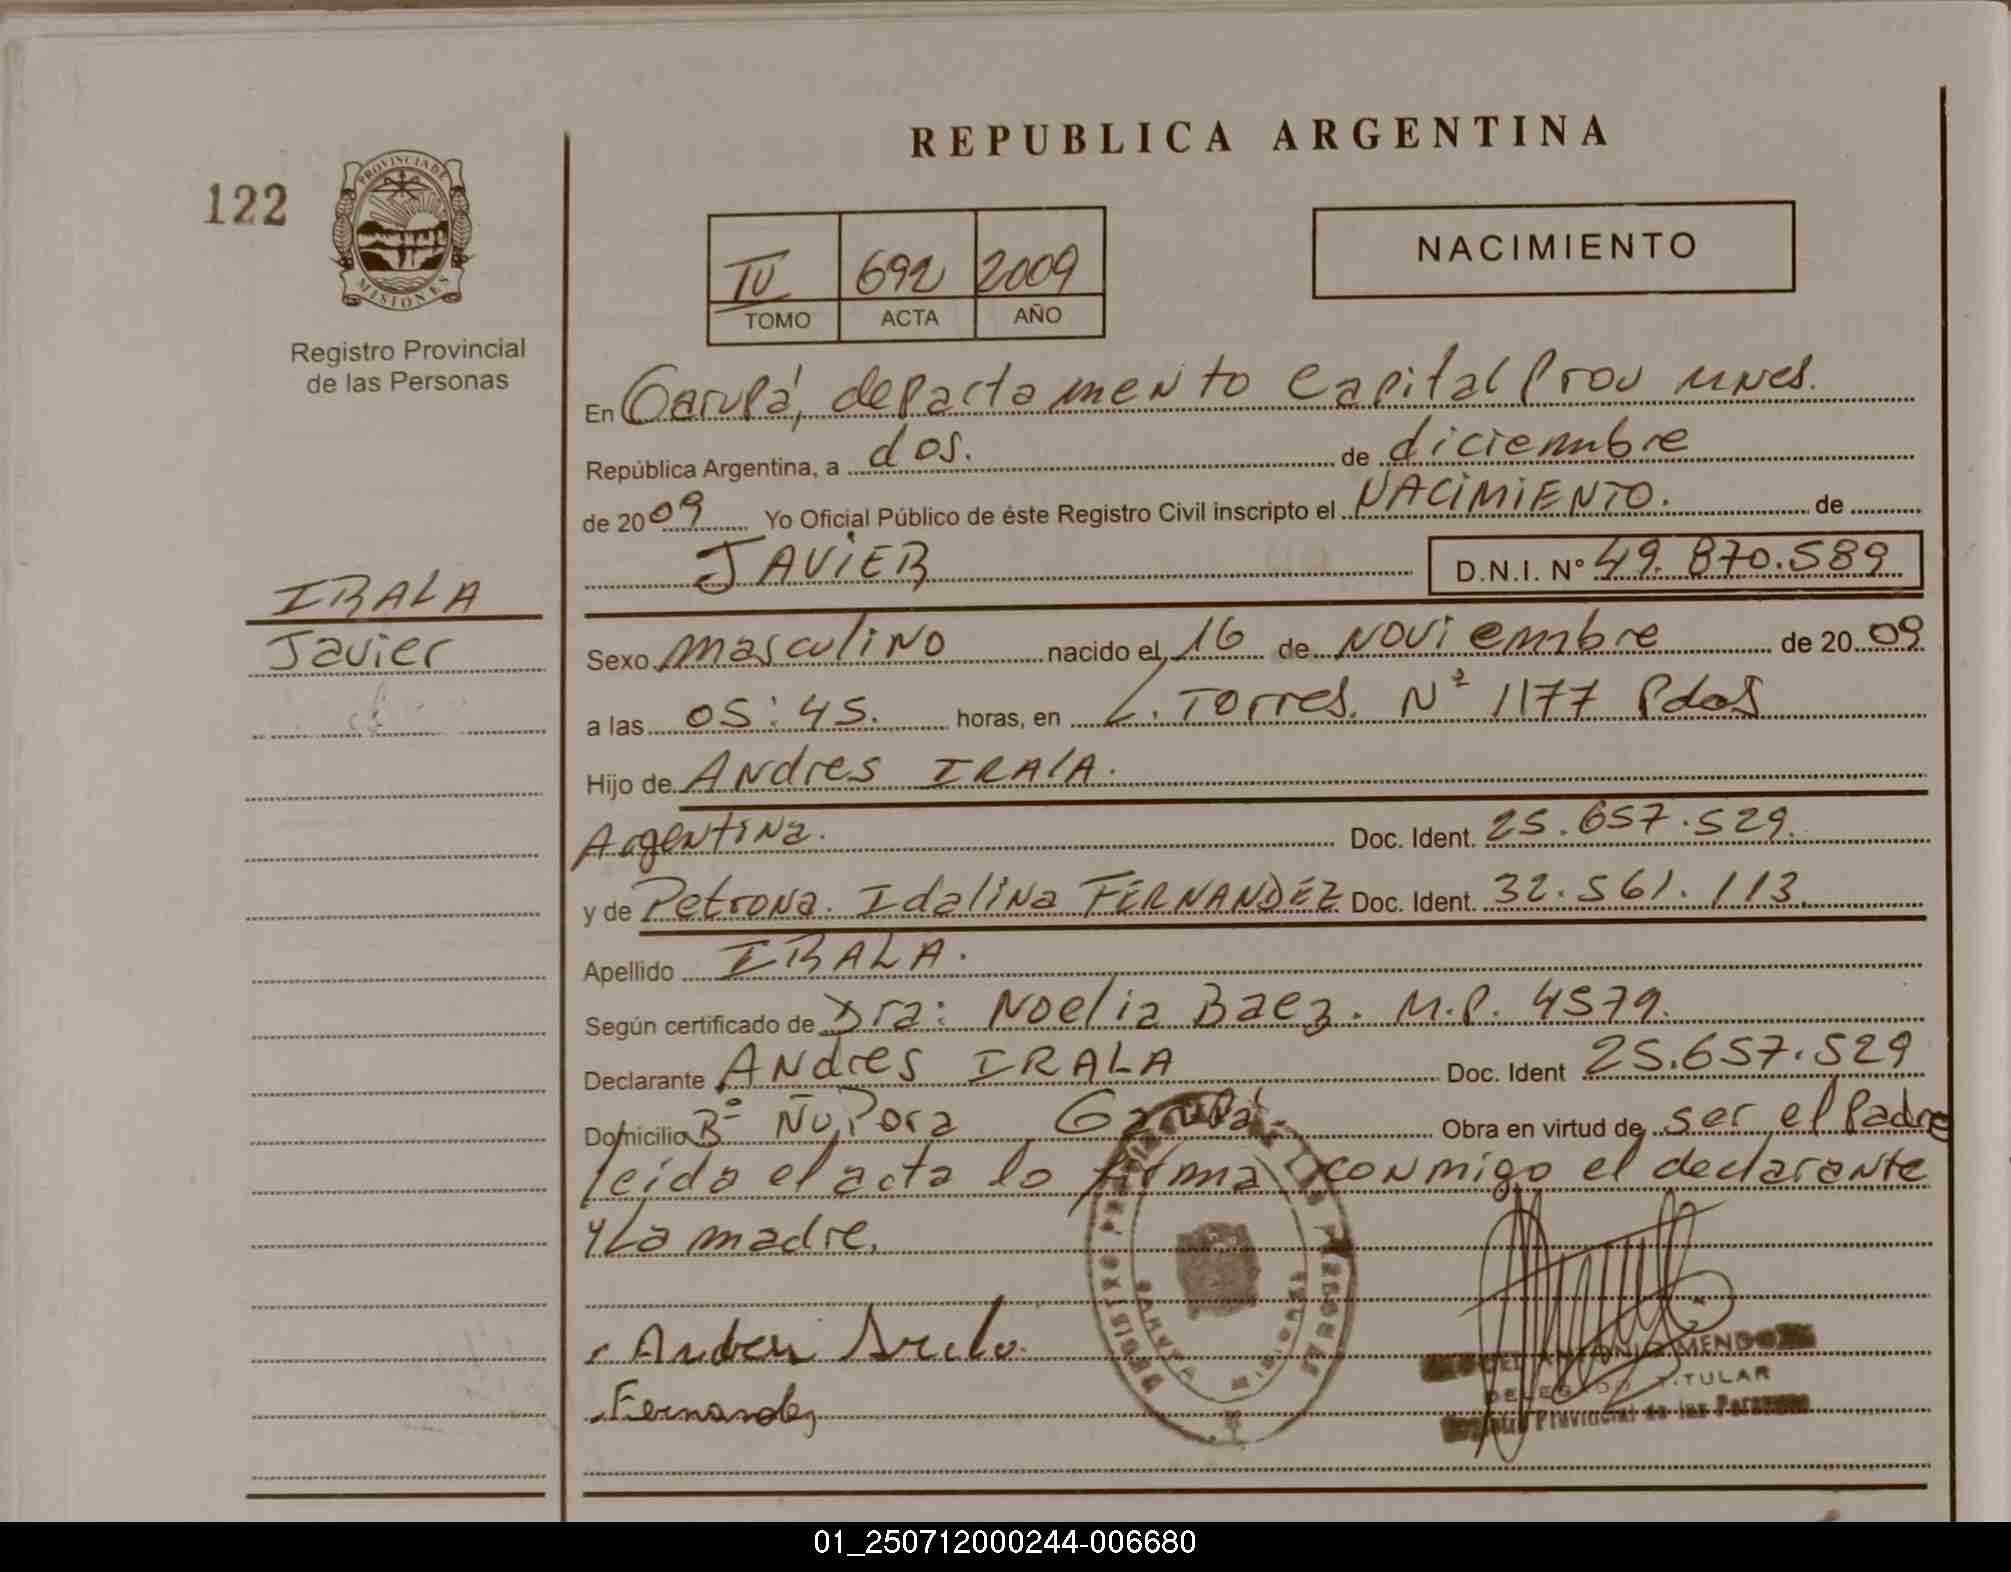 REPUBLICA ARGENTINA
122
PROVINCIA DE
MISIONES
Registro Provincial
de las Personas
IV 692 2009
TOMO ACTA AÑO
NACIMIENTO
En Garupá, departamento Capital Prov Mnes.
República Argentina, a dos. de diciembre
de 2009 Yo Oficial Público de éste Registro Civil inscripto el NACIMIENTO. de
JAVIER D.N.I. Nº 49.870.589
IRALA
Javier
Sexo masculino nacido el 16 de Noviembre de 2009
a las 05:45. horas, en L. Torres. Nº 1177 Pdas
Hijo de Andres IRALA.
Argentina. Doc. Ident. 25.657.529.
y de Petrona. Idalina FERNANDEZ Doc. Ident. 32.561.113.
Apellido IRALA.
Según certificado de Dra: Noelia Baez. M.P. 4579.
Declarante Andres IRALA Doc. Ident 25.657.529
Domicilio Bº Ñu Pora Garupá Obra en virtud de ser el Padre
leida el acta lo firma conmigo el declarante
y La madre.
Andres Irala.
Fernandez
ANTONIO MENDOZA
DELEGADO TITULAR
Registro Provincial de las Personas
01_250712000244-006680